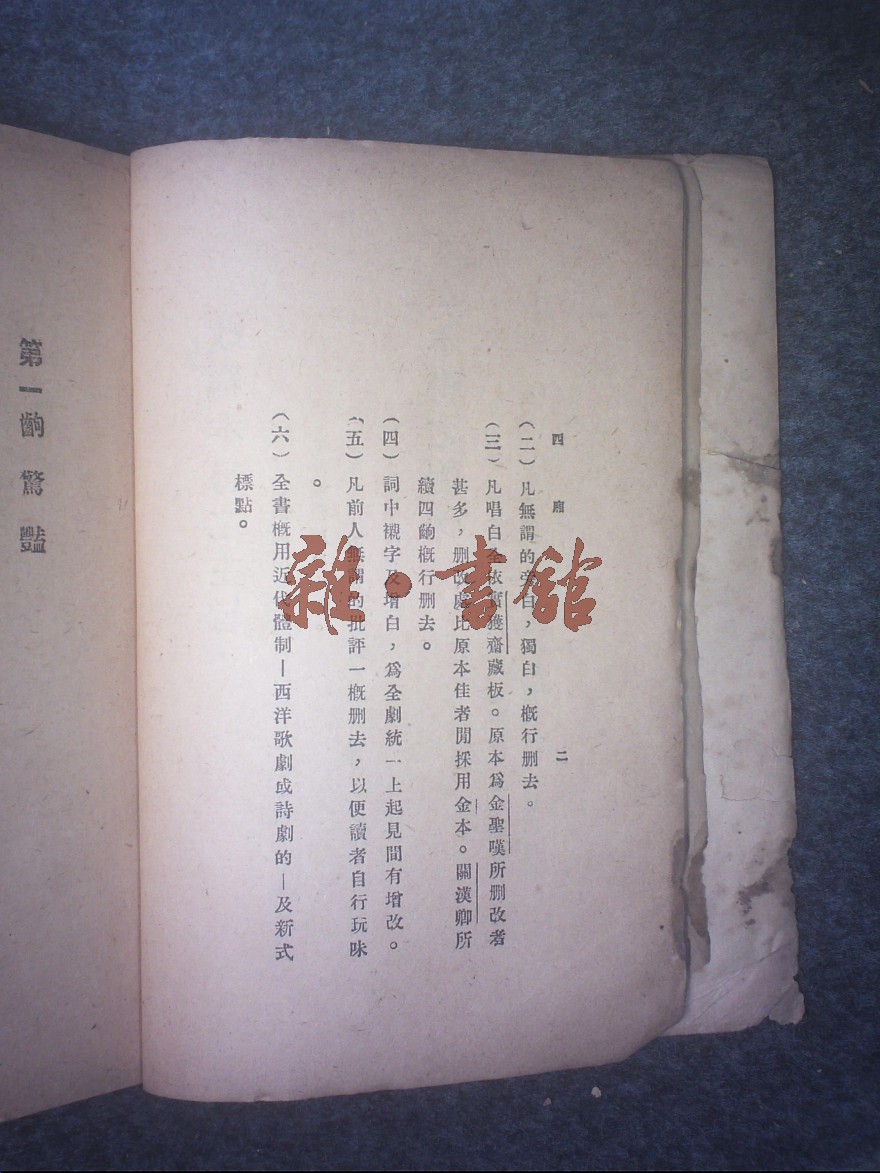 四廂 二
(二)凡無謂的旁白,獨白,概行删去。
(三)凡唱白全依實獲齋藏板。原本爲金聖嘆所删改者
甚多,删改處比原本佳者間採用金本。關漢卿所
續四齣概行删去。
(四)詞中襯字及增白,爲全劇統一上起見間有增改。
(五)凡前人無謂的批評一概删去,以便讀者自行玩味
。
(六)全書概用近代體制—西洋歌劇或詩劇的—及新式
標點。
第一齣 驚豔
雜·書館